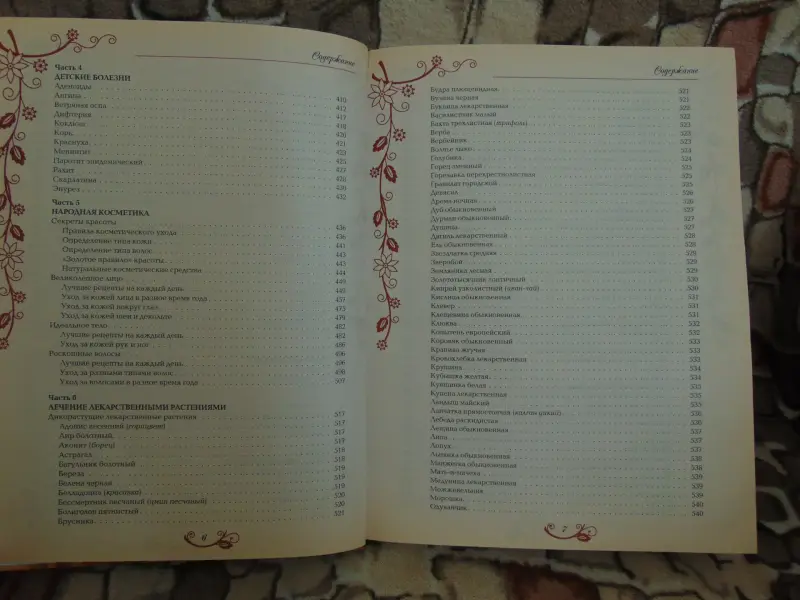 Содержание
Часть 4
ДЕТСКИЕ БОЛЕЗНИ
Аденоиды
Ангина 410
Ветряная оспа 412
Дифтерия 417
Коклюш 418
Корь 420
Краснуха 421
Менингит 423
Паротит эпидемический 425
Рахит 427
Скарлатина 428
Энурез 430
432
Часть 5
НАРОДНАЯ КОСМЕТИКА
Секреты красоты
Правила косметического ухода 436
Определение типа кожи 436
Определение типа волос 441
«Золотое правило» красоты 443
Натуральные косметические средства 443
Великолепное лицо 444
Лучшие рецепты на каждый день
Уход за кожей лица в разное время года
Уход за кожей вокруг глаз
Уход за кожей шеи и декольте
Идеальное тело
Лучшие рецепты на каждый день 482
Уход за кожей рук и ног 482
Роскошные волосы
Лучшие рецепты на каждый день 496
Уход за разными типами волос 498
Уход за волосами в разное время года 507
Часть 6
ЛЕЧЕНИЕ ЛЕКАРСТВЕННЫМИ РАСТЕНИЯМИ
Дикорастущие лекарственные растения 517
Адонис весенний (горицвет) 517
Аир болотный 517
Аконит (борец)
Астрагал 518
Багульник болотный 518
Береза 519
Белена черная 519
Белладонна (красавка) 519
Бессмертник песчаный (цмин песчаный) 520
Болиголов пятнистый 520
Брусника 521
6
Содержание
Будра плющевидная 521
Бузина черная 521
Буквица лекарственная 522
Василистник малый 522
Вахта трехлистная (трифоль) 522
Верба 523
Вербейник 523
Волчье лыко 524
Голубика 524
Горец змеиный 525
Горечавка перекрестнолистная 525
Гравилат городской 525
Девясил 526
Дрема ночная 526
Дуб обыкновенный 527
Дурман обыкновенный 527
Душица 527
Дягиль лекарственный 528
Ель обыкновенная 528
Звездчатка средняя 529
Зверобой 529
Земляника лесная 529
Золототысячник зонтичный 530
Кипрей узколистный (иван-чай) 530
Кислица обыкновенная 531
Клевер 531
Клещевина обыкновенная 532
Клюква 532
Копытень европейский 532
Коровяк обыкновенный 533
Крапива жгучая 533
Кровохлебка лекарственная 533
Крушина 534
Кубышка желтая 534
Кувшинка белая 535
Купена лекарственная 535
Ландыш майский 535
Лапчатка прямостоячая
Лебеда раскидистая 536
Лещина обыкновенная
Липа 537
Лопух 537
Льнянка обыкновенная 538
Манжетка обыкновенная 538
Мать-и-мачеха 538
Медуница лекарственная 539
Можжевельник 539
Морошка 540
Одуванчик 540
7